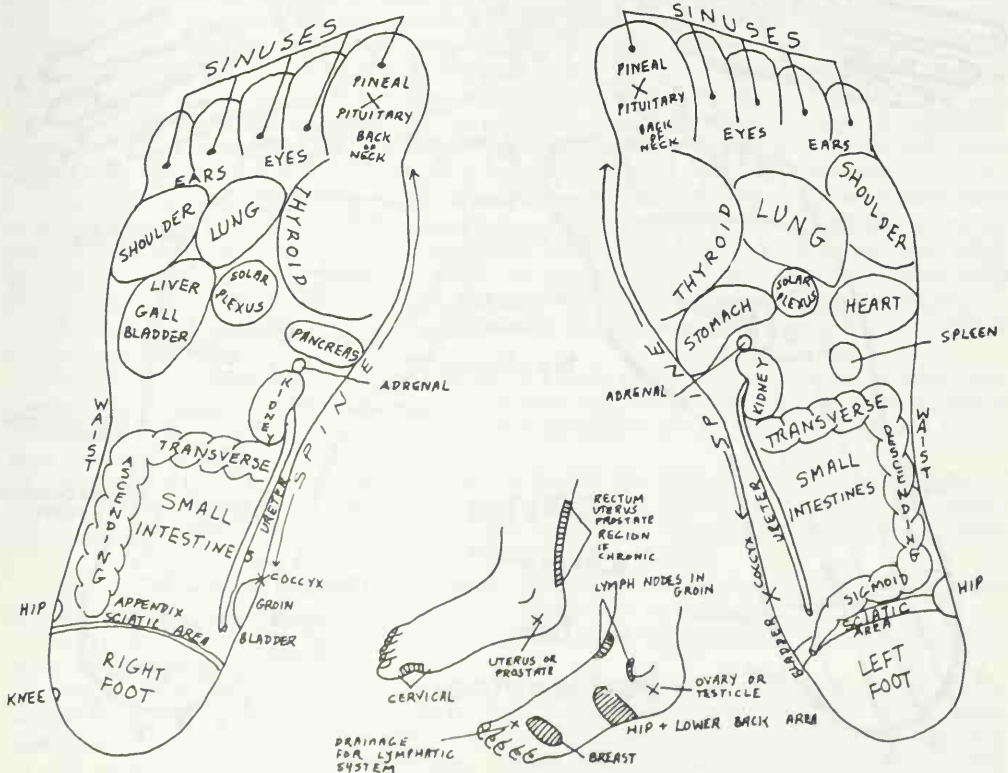 SINUSES
PINEAL
X
PITUITARY
BACK
OF
NECK
EYES
EARS
SHOULDER
LUNG
THYROID
LIVER
GALL
BLADDER
SOLAR
PLEXUS
PANCREAS
ADRENAL
KIDNEY
SPINE
SPINE
WAIST
TRANSVERSE
ASCENDING
SMALL
INTESTINES
URETER
X COCCYX
GROIN
BLADDER
HIP
APPENDIX
SCIATIC AREA
RIGHT
FOOT
KNEE
SINUSES
PINEAL
X
PITUITARY
BACK
OF
NECK
EYES
EARS
SHOULDER
LUNG
THYROID
SOLAR
PLEXUS
STOMACH
HEART
SPLEEN
ADRENAL
KIDNEY
SPINE
WAIST
TRANSVERSE
DESCENDING
SMALL
INTESTINES
URETER
BLADDER X COCCYX
SIGMOID
SCIATIC
AREA
HIP
LEFT
FOOT
RECTUM
UTERUS
PROSTATE
REGION
IF
CHRONIC
LYMPH NODES IN
GROIN
X
UTERUS OR
PROSTATE
CERVICAL
X OVARY OR
TESTICLE
HIP + LOWER BACK AREA
X
BREAST
DRAINAGE
FOR LYMPHATIC
SYSTEM